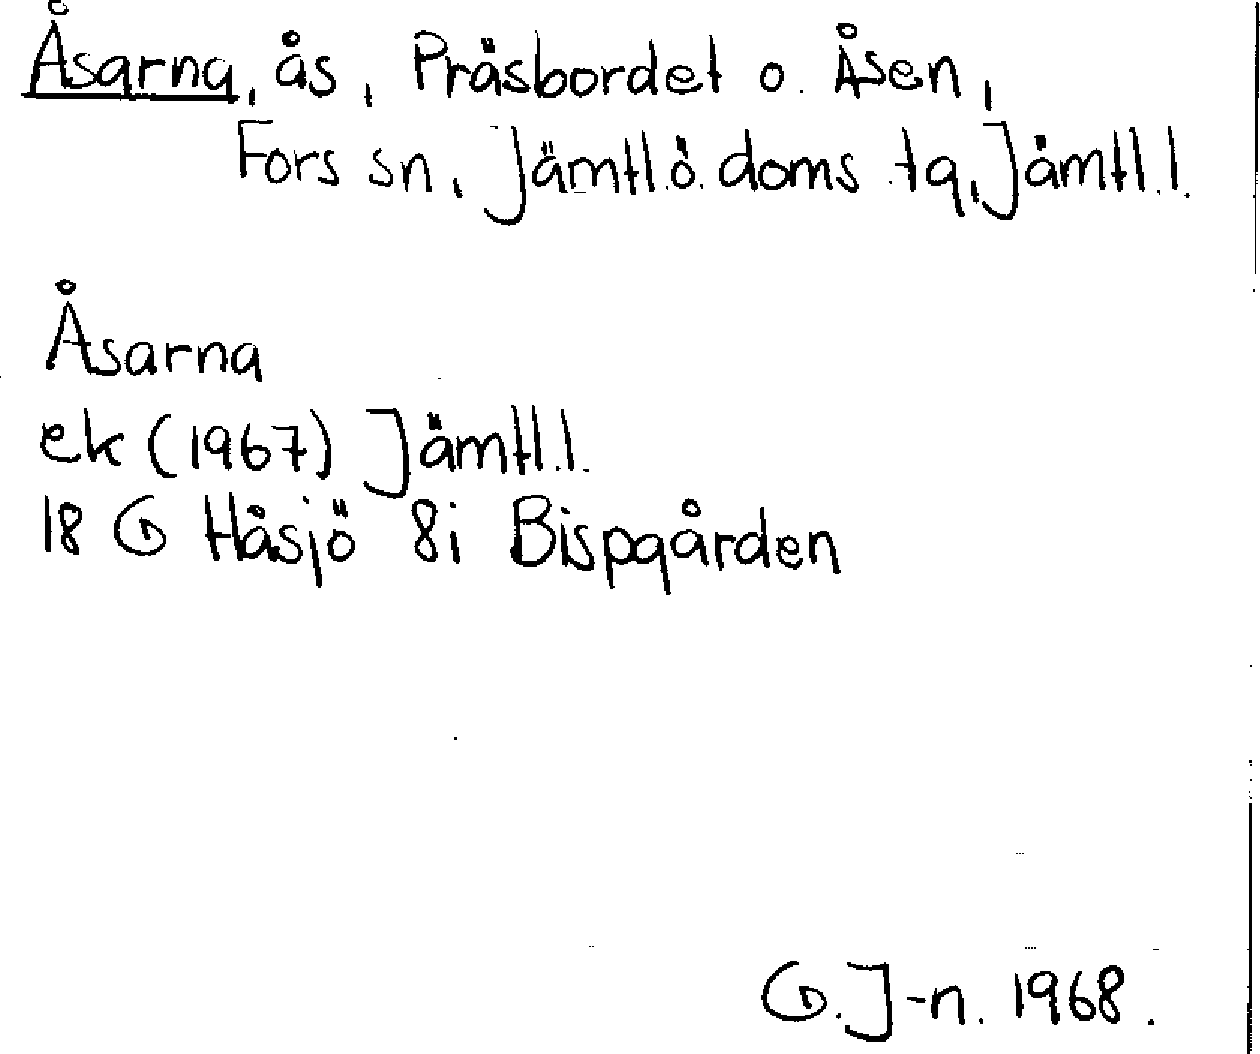 Åsarna, ås, Präsbordet o. Åsen,
Fors sn, Jämtl.ö. doms. tg, Jämtl.l.
Åsarna
ek (1967) Jämtl.l.
18 G Håsjö 8i Bispgården
G. J-n. 1968.